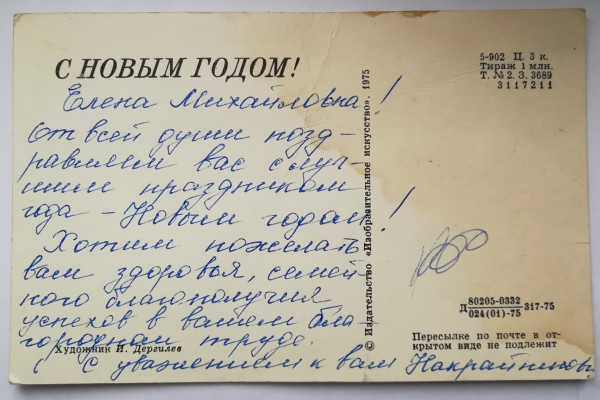 С НОВЫМ ГОДОМ!
Елена Михайловна!
От всей души позд-
равляем вас с луч-
шим праздником
года - Новым годом!
Хотим пожелать
вам здоровья, семей-
ного благополучия
успехов в вашем бла-
городном труде.
С уважением к вам Накрайниковы
Художник И. Дергилев
© Издательство «Изобразительное искусство». 1975
5-902 Ц. 3 к.
Тираж 1 млн.
Т. № 2. З. 3689
3117211
Д 80205-0332
024(01)-75 317-75
Пересылке по почте в от-
крытом виде не подлежит